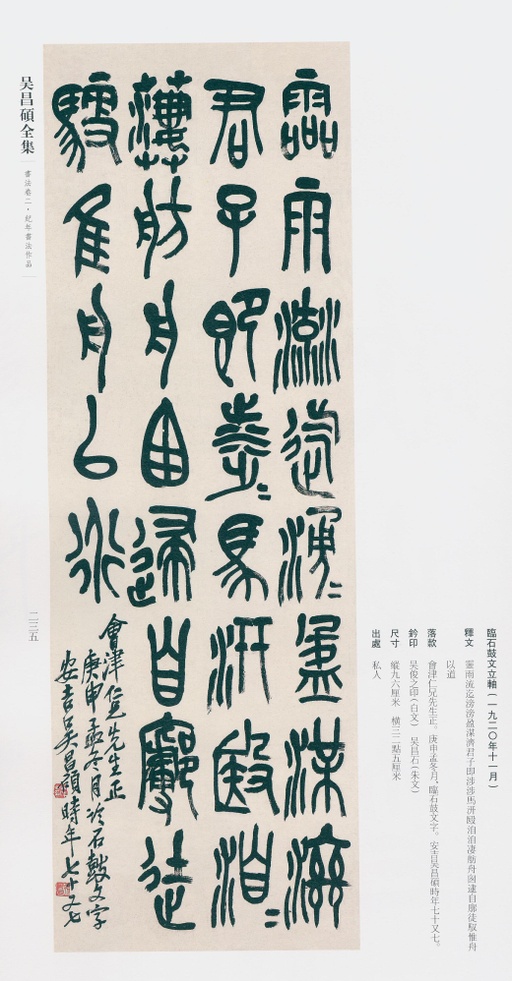 臨石鼓文立軸(一九二〇年十一月)
釋文 靈雨流迄滂滂盈渫濟君子即涉涉馬汧殹洎洎淒舫舟囪逮自廓徒馭惟舟
以道
落款 會津仁兄先生正。庚申孟冬月,臨石鼓文字。安吉吳昌碩時年七十又七。
鈐印 吳俊之印(白文) 吳昌石(朱文)
尺寸 縱九六厘米 橫三二點五厘米
出處 私人
霝雨流迄湧=盈渫濟
君子即涉=馬汧殹洎=
萋舫舟囪逮自廓徒
馭隹舟以道
會津仁兄先生正
庚申孟冬月臨石鼓文字
安吉吳昌碩時年七十又七
吴昌碩全集
書法卷二·紀年書法作品
二三五